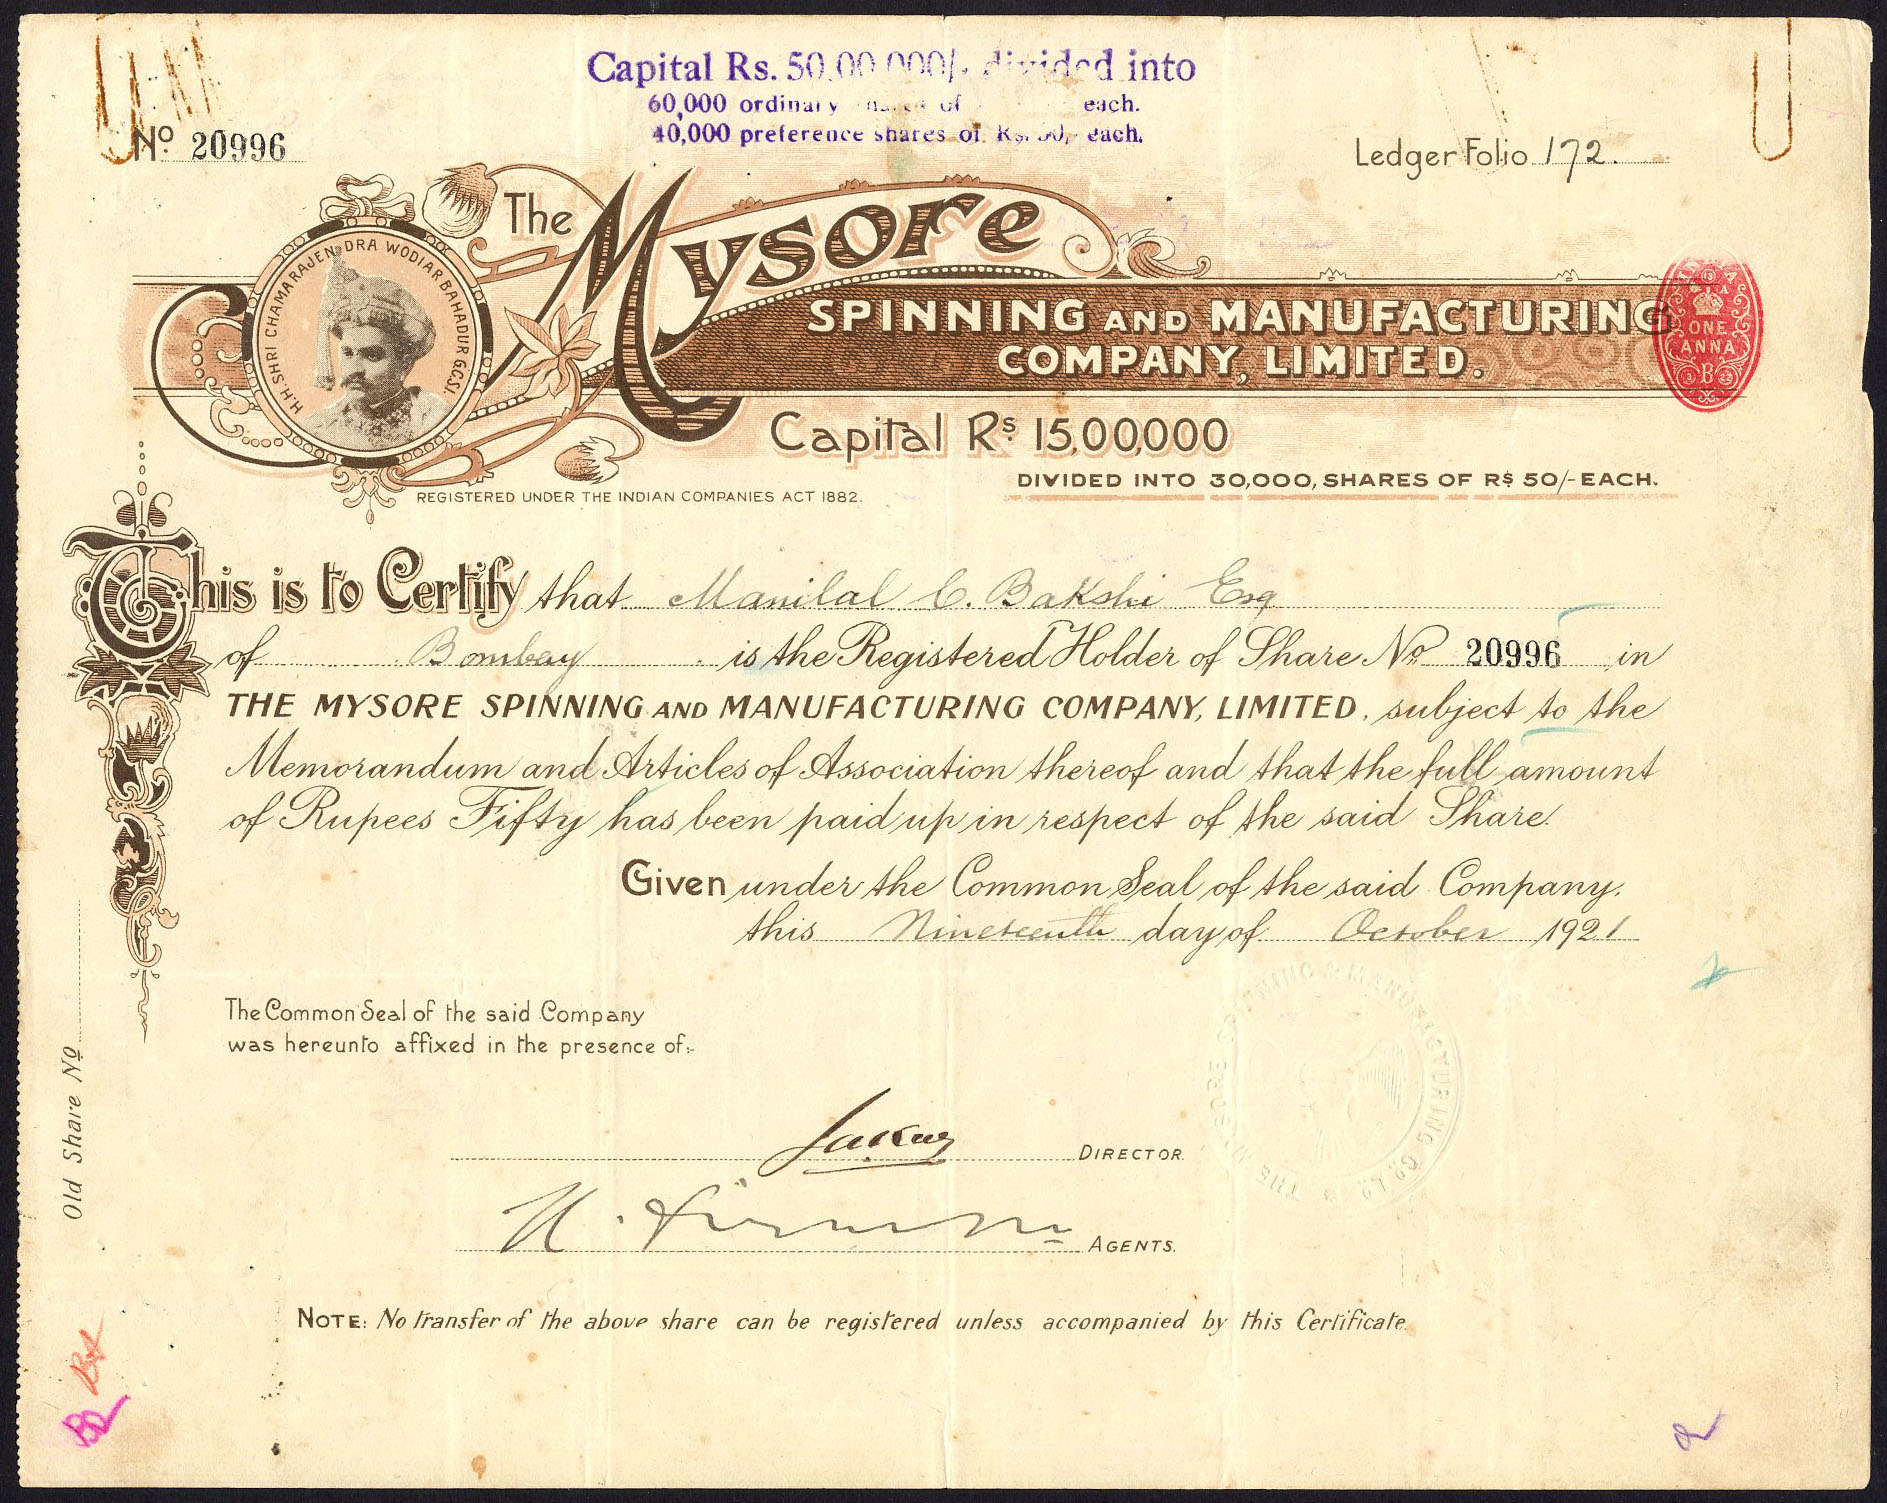 Capital Rs. 50,00,000/- divided into
60,000 ordinary shares of each.
40,000 preference shares of Rs. 50/- each.
No 20996
Ledger Folio 172.
The Mysore
SPINNING AND MANUFACTURING
COMPANY, LIMITED.
H.H. SHRI CHAMARAJENDRA WODIAR BAHADUR G.C.S.I.
ONE
ANNA
B
Capital Rs. 15,00,000
DIVIDED INTO 30,000, SHARES OF RS 50/- EACH.
REGISTERED UNDER THE INDIAN COMPANIES ACT 1882.
This is to Certify that Manilal C. Bakshi Esq
of Bombay is the Registered Holder of Share No 20996 in
THE MYSORE SPINNING AND MANUFACTURING COMPANY, LIMITED, subject to the
Memorandum and Articles of Association thereof and that the full amount
of Rupees Fifty has been paid up in respect of the said Share.
Given under the Common Seal of the said Company.
this Nineteenth day of October 1921
The Common Seal of the said Company
was hereunto affixed in the presence of:-
THE MYSORE SPINNING & MANUFACTURING CO. LD.
DIRECTOR.
AGENTS.
Old Share No
NOTE: No transfer of the above share can be registered unless accompanied by this Certificate.